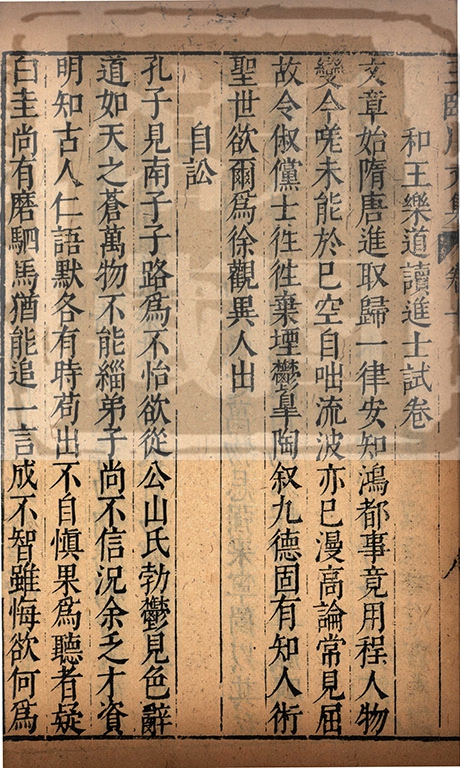 王臨川文集 卷十
和王樂道讀進士試卷
文章始隋唐進取歸一律安知鴻都事竟用程人物
變今嗟未能於已空自咄流波亦已漫高論常見屈
故令俶儻士徃徃棄堙鬱臯陶叙九德固有知人術
聖世欲爾爲徐觀異人出
自訟
孔子見南子子路爲不怡欲從公山氏勃鬱見色辭
道如天之蒼萬物不能緇弟子尚不信況余乏才資
明知古人仁語默各有時苟出不自慎果爲聽者疑
白圭尚有磨駟馬猶能追一言成不智雖悔欲何爲